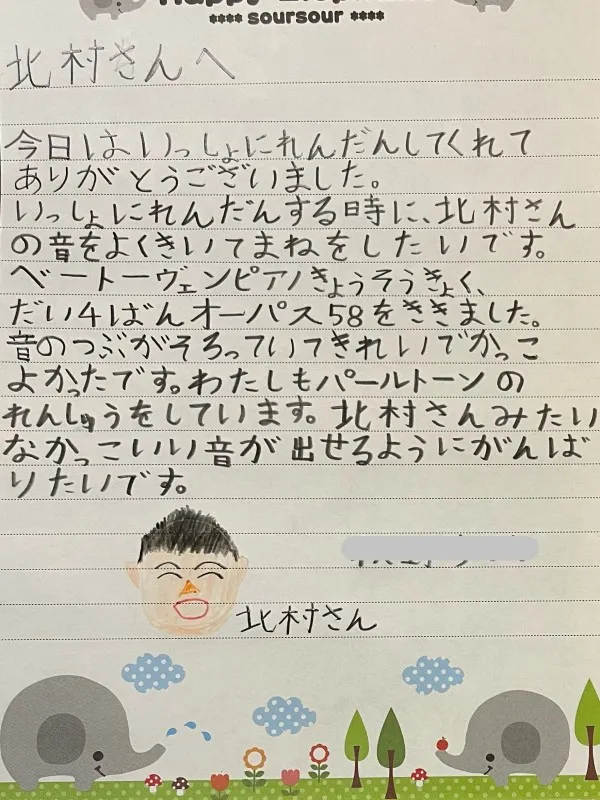 **** soursour ****
北村さんへ
今日はいっしょにれんだんしてくれて
ありがとうございました。
いっしょにれんだんする時に、北村さん
の音をよくきいてまねをしたいです。
ベートーヴェンピアノきょうそうきょく、
だい4ばんオーパス58をききました。
音のつぶがそろっていてきれいでかっこ
よかったです。わたしもパールトーンの
れんしゅうをしています。北村さんみたい
なかっこいい音が出せるようにがんば
りたいです。
北村さん